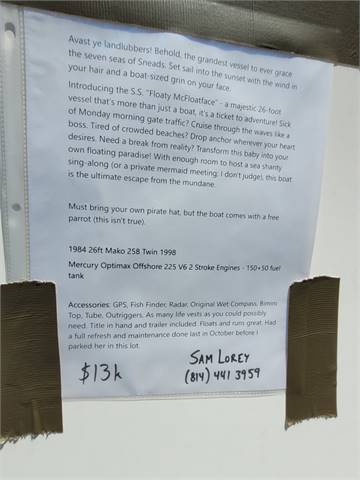 Avast ye landlubbers! Behold, the grandest vessel to ever grace
the seven seas of Sneads. Set sail into the sunset with the wind in
your hair and a boat-sized grin on your face.
Introducing the S.S. "Floaty McFloatface" - a majestic 26-foot
vessel that's more than just a boat, it's a ticket to adventure! Sick
of Monday morning gate traffic? Cruise through the waves like a
boss. Tired of crowded beaches? Drop anchor wherever your heart
desires. Need a break from reality? Transform this baby into your
own floating paradise! With enough room to host a sea shanty
sing-along (or a private mermaid meeting; I don't judge), this boat
is the ultimate escape from the mundane.
Must bring your own pirate hat, but the boat comes with a free
parrot (this isn't true).
1984 26ft Mako 258 Twin 1998
Mercury Optimax Offshore 225 V6 2 Stroke Engines - 150+50 fuel
tank
Accessories: GPS, Fish Finder, Radar, Original Wet Compass, Bimini
Top, Tube, Outriggers, As many life vests as you could possibly
need. Title in hand and trailer included. Floats and runs great. Had
a full refresh and maintenance done last in October before I
parked her in this lot.
$13k
SAM LOREY
(814) 441 3959